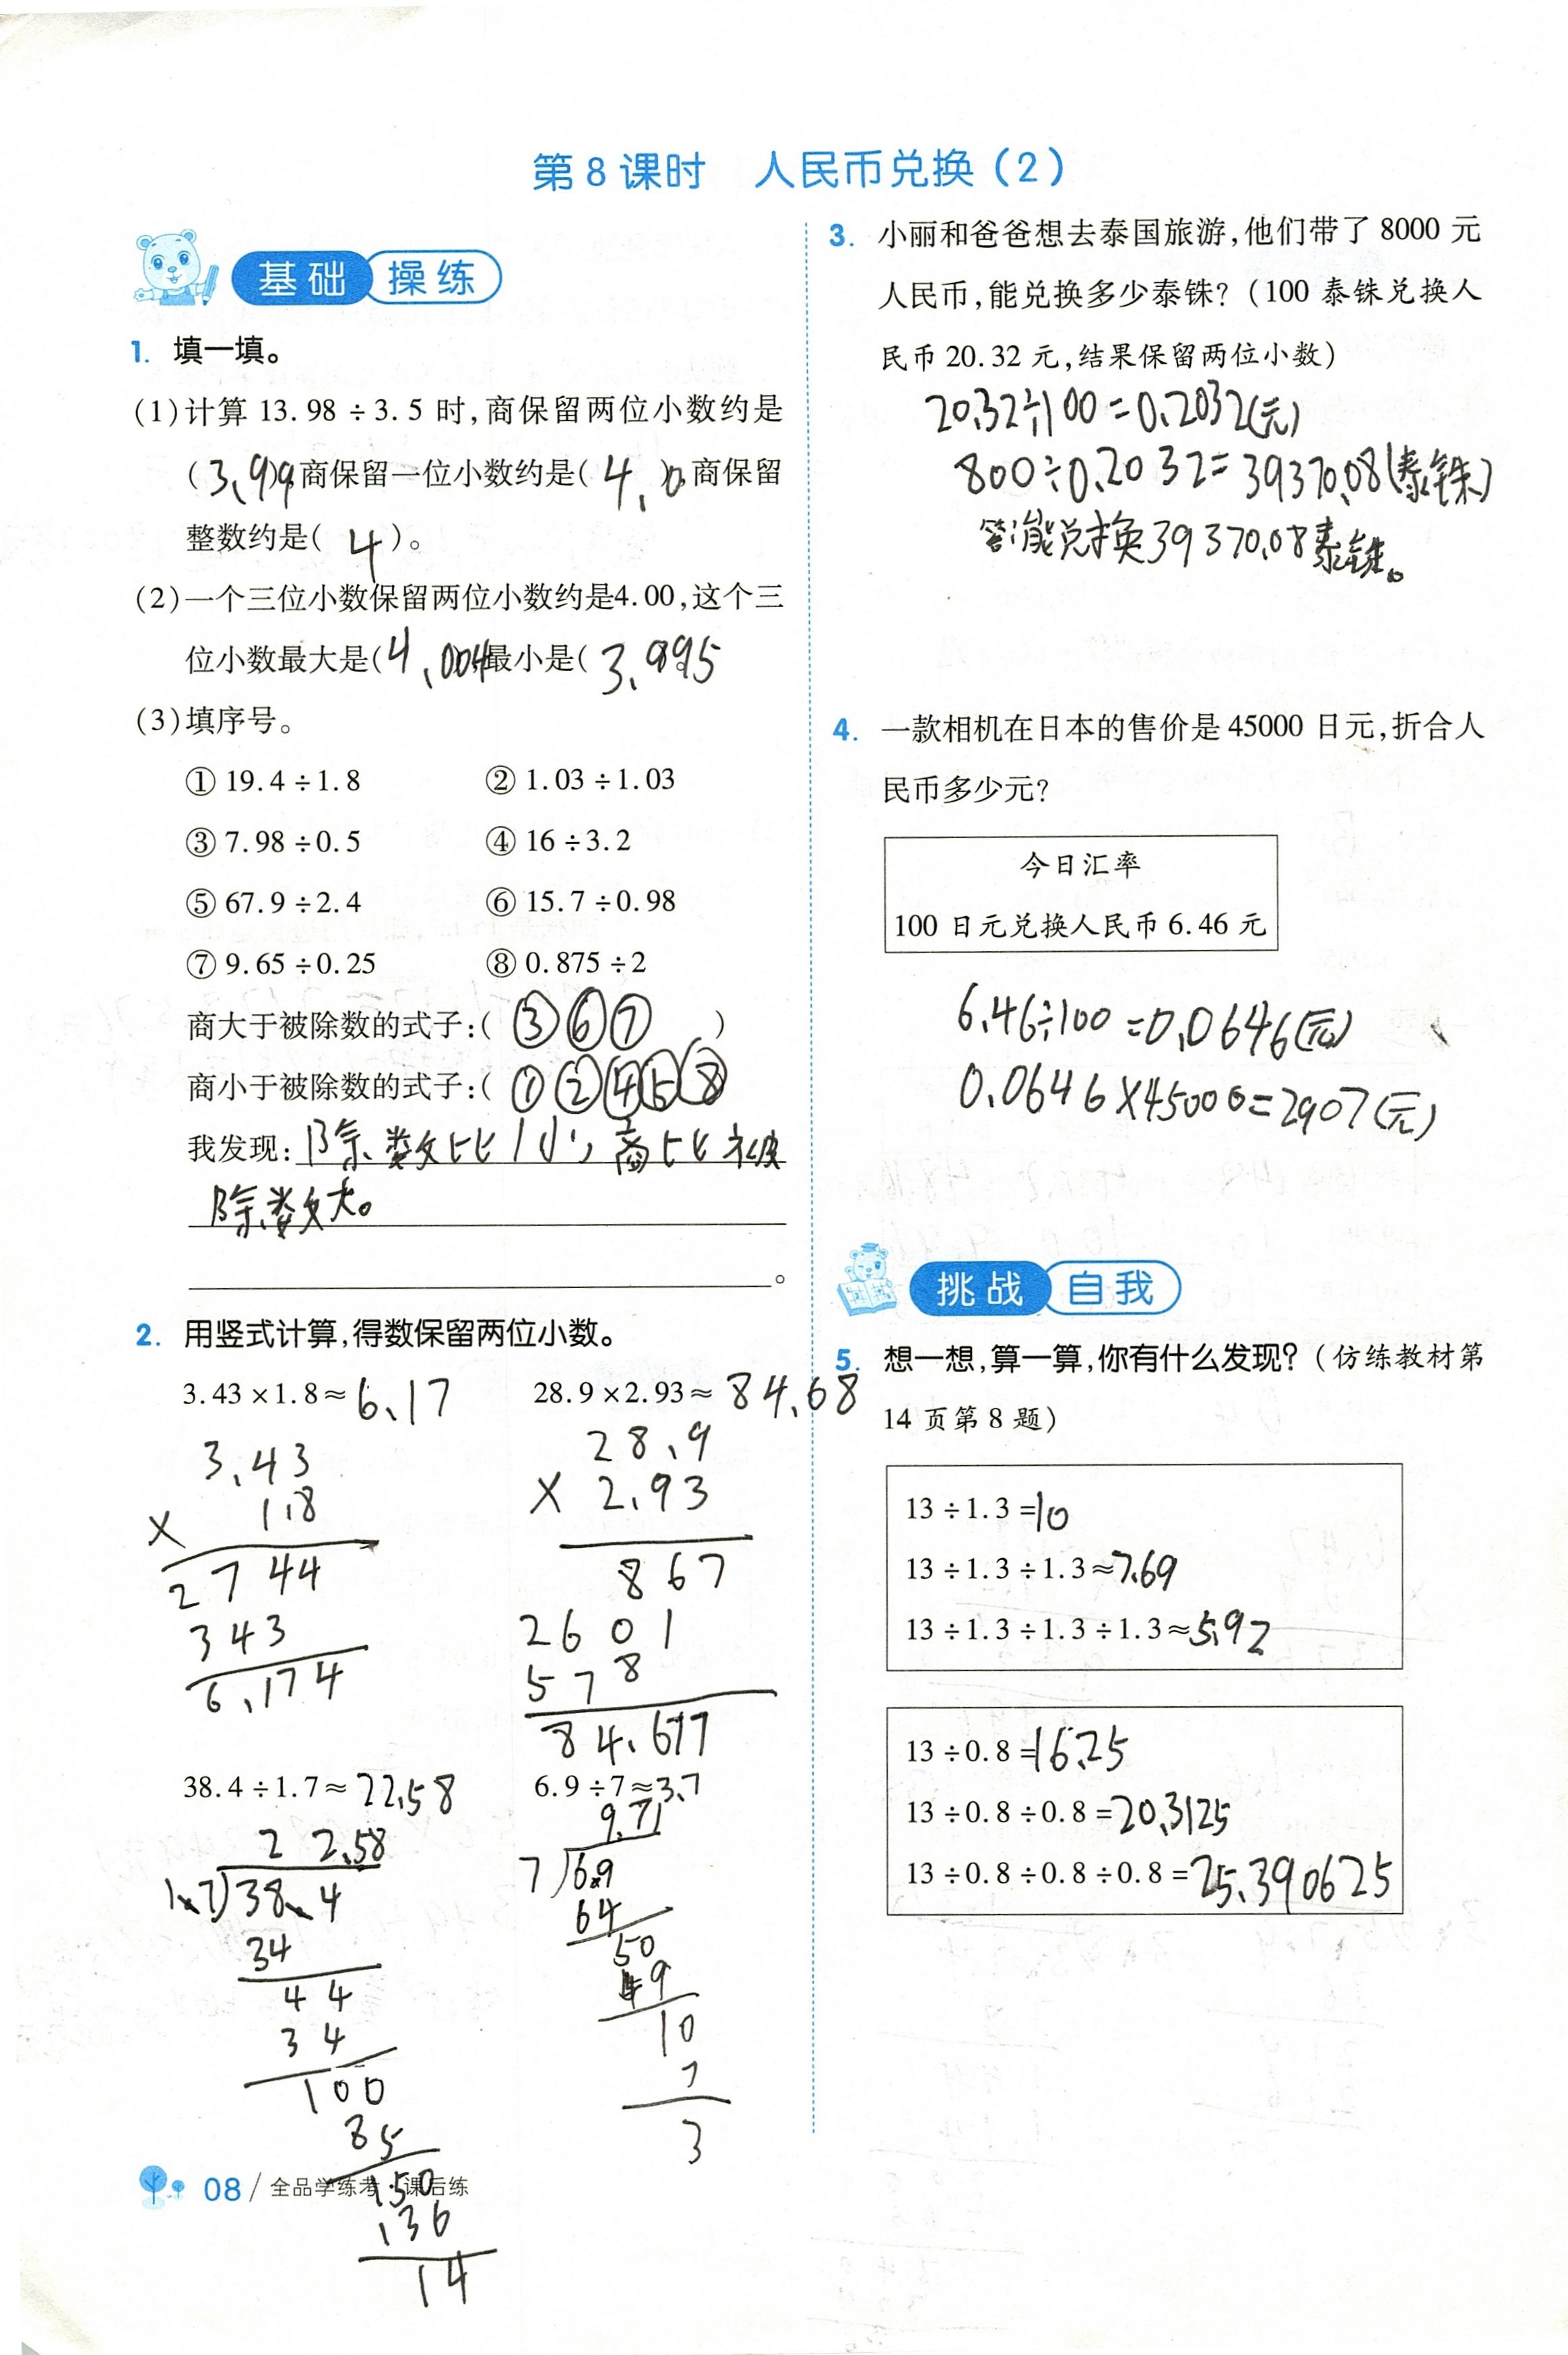 第8课时 人民币兑换(2)
基础 操练
1. 填一填。
(1)计算13.98÷3.5时,商保留两位小数约是
(3.99),商保留一位小数约是(4.0),商保留
整数约是(4)。
(2)一个三位小数保留两位小数约是4.00,这个三
位小数最大是(4.004最小是(3.995
(3)填序号。
①19.4÷1.8 ②1.03÷1.03
③7.98÷0.5 ④16÷3.2
⑤67.9÷2.4 ⑥15.7÷0.98
⑦9.65÷0.25 ⑧0.875÷2
商大于被除数的式子:(③⑥⑦)
商小于被除数的式子:(①②④⑤⑧
我发现:除数比1小,商比被
除数大。
。
2. 用竖式计算,得数保留两位小数。
3.43×1.8≈6.17 28.9×2.93≈84.68
3.43
× 1.8
2744
343
6.174
28.9
× 2.93
867
2601
578
84.677
38.4÷1.7≈22.58 6.9÷7≈3.7
22.58
1.7)38.4
34
44
34
100
85
150
136
14
9.71
7)6.9
64
50
49
10
7
3
08/全品学练考 课后练
3. 小丽和爸爸想去泰国旅游,他们带了8000元
人民币,能兑换多少泰铢?(100泰铢兑换人
民币20.32元,结果保留两位小数)
20.32÷100=0.2032(元)
800÷0.2032=39370.08(泰铢)
答:能兑换39370.08泰铢。
4. 一款相机在日本的售价是45000日元,折合人
民币多少元?
今日汇率
100日元兑换人民币6.46元
6.46÷100=0.0646(元)
0.0646×45000=2907(元)
挑战 自我
5. 想一想,算一算,你有什么发现?(仿练教材第
14页第8题)
13÷1.3=10
13÷1.3÷1.3≈7.69
13÷1.3÷1.3÷1.3≈5.92
13÷0.8=16.25
13÷0.8÷0.8=20.3125
13÷0.8÷0.8÷0.8=25.390625